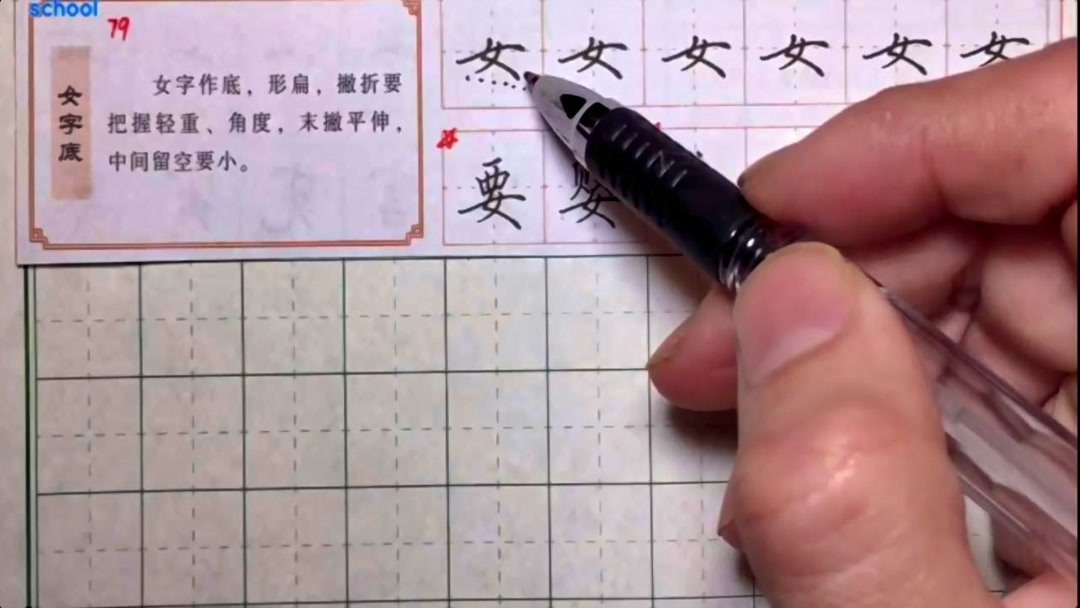 school
79
女字底
女字作底，形扁，撇折要
把握轻重、角度，末撇平伸，
中间留空要小。
女 女 女 女 女 女
要